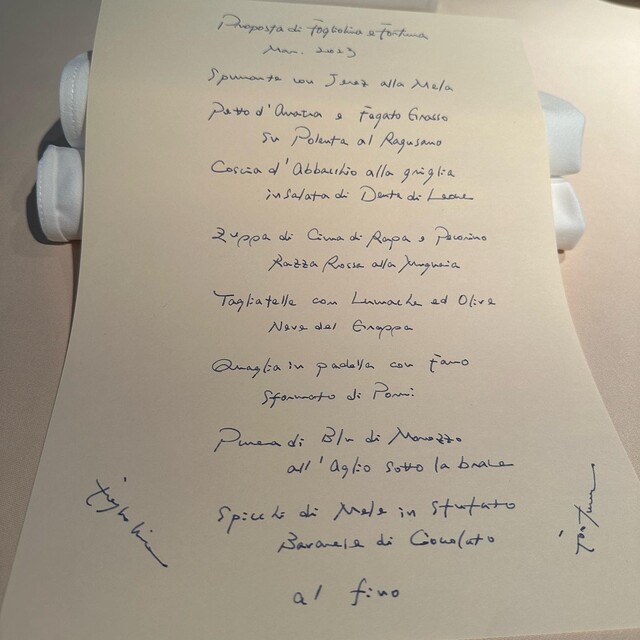 Proposta di Fogliolina e Fortuna
Mar. 2023
Spumante con Jerez alla Mela
Petto d'Anatra e Fegato Grasso
su Polenta al Ragusano
Coscia d'Abbacchio alla griglia
insalata di Dente di Leone
Zuppa di Cima di Rapa e Pecorino
Razza Rossa alla Mugnaia
Tagliatelle con Lumache ed Olive
Neve del Grappa
Quaglia in padella con Farro
Sformato di Porri
Purea di Blu di Morozzo
all'Aglio sotto la brace
Spicchi di Mele in Stufato
Bavarese di Cioccolato
al fino